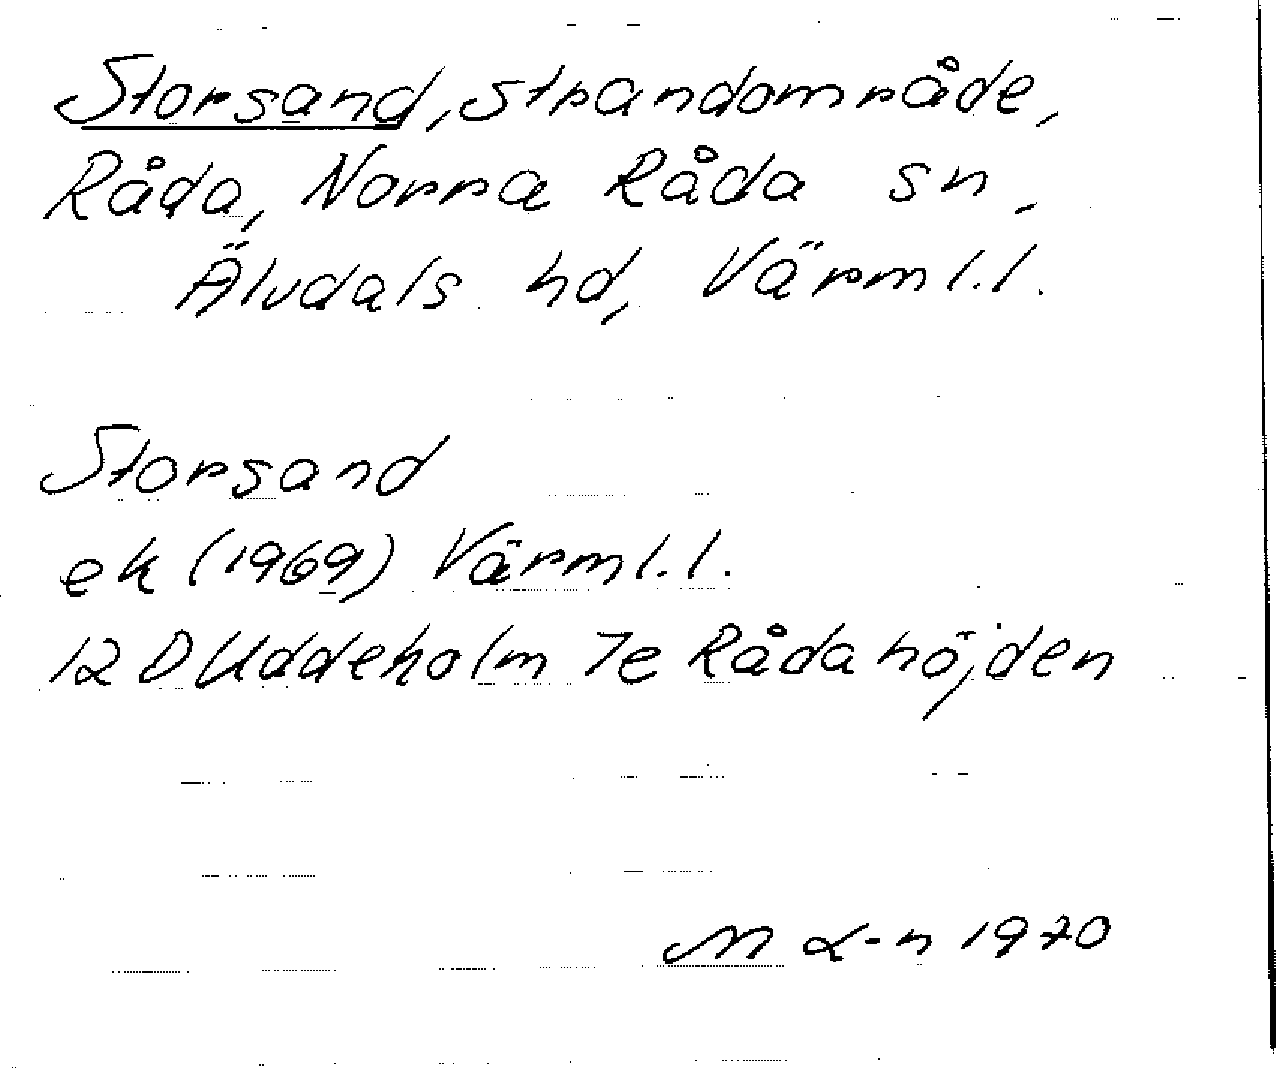 Storsand, strandområde,
Råda, Norra Råda sn,
Älvdals hd, Värml.l.
Storsand
ek (1969) Värml.l.
12 D Uddeholm 7e Rådahöjden
M L-n 1970